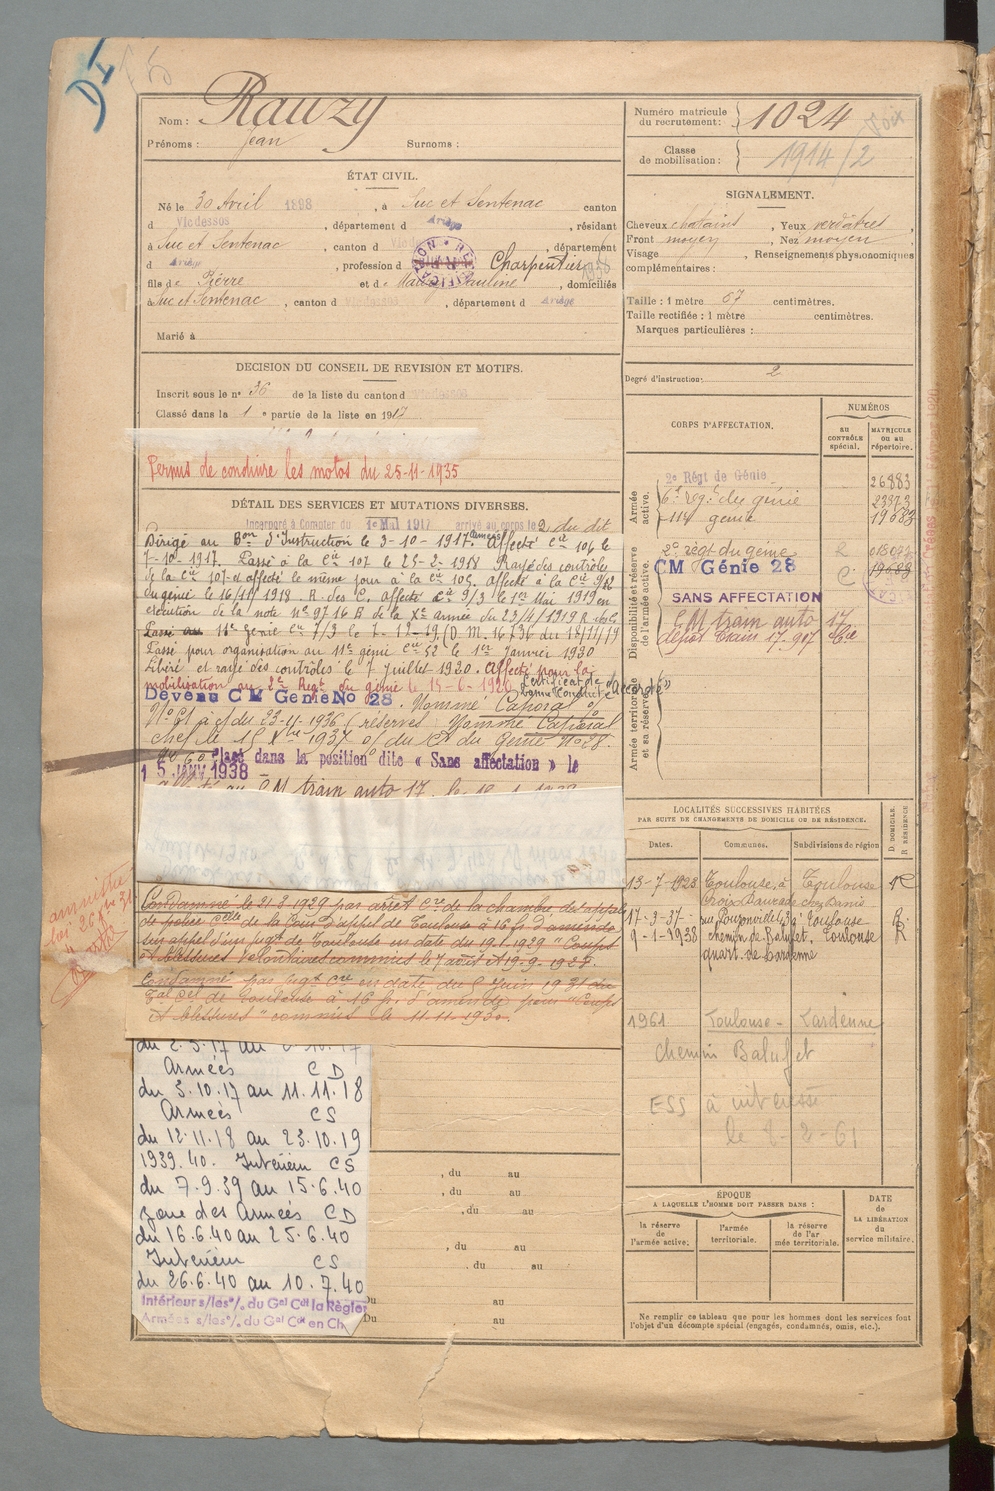 Nom : Rauzy
Prénoms : Jean Surnoms :
ÉTAT CIVIL.
Né le 30 Avril 1898, à Suc et Sentenac canton
d Vicdessos, département d Ariège, résidant
à Suc et Sentenac, canton d Vic, département
d Ariège, profession d Charpentier
fils de Pierre et de Pauline, domiciliés
à Suc et Sentenac, canton d Vicdessos, département d Ariège
Marié à
DECISION DU CONSEIL DE REVISION ET MOTIFS.
Inscrit sous le n° 36 de la liste du canton d Vicdessos
Classé dans la 1e partie de la liste en 1917
Permis de conduire les motos du 25-11-1935
DÉTAIL DES SERVICES ET MUTATIONS DIVERSES.
Incorporé à Compter du 1er Mai 1917 arrivé au corps le 2 du dit
Dirigé au Bon d'Instruction le 3-10-1917. Affecté Cie 106 le
7-10-1917. Passé à la Cie 107 le 25-2-1918 Rayé des contrôles
de la Cie 107 et affecté le même jour à la Cie 105, affecté à la Cie 9/2
du génie le 16/11/1918. R. des C. affecté Cie 9/3 le 1er Mai 1919 en
exécution de la note n° 9716 B de la Xe armée du 23/4/1919
Passé au 11e génie Cie 7/3 le 7-11-19 (D. M. 16736 du
Passé pour organisation au 11e génie Cie 52 le 1er Janvier 1920
Libéré et rayé des contrôles le 7 juillet 1920. Affecté pour la
mobilisation au 2e Regt du génie le 15-6-192
Certificat de Bonne Conduite "Accordé"
Devenu C M Genie No 28. Nommé Caporal
du 23-11-1936 (réserves) Nommé Caporal
chef le 15 Xbre 1937 du Ct du Genie N° 28.
Placé dans la position dite « Sans affectation » le
15 JANV 1938
CM train auto 17
Condamné le 21-3-1929 par arrêt Cre de la chambre des appels
de police Celle de la Cour d'appel de Toulouse à 16 f d'amende
sur appel d'un jugt de Toulouse en date du 19-1-1929 "Coups
et blessures volontaires commis le 7 août et 19-9-1928.
Condamné par jugt Cre en date du 5 Juin 1931 du
de Toulouse à 16 f. d'amende pour "Coups
et blessures" commis le 11-11-1930.
amnistie
loi
du 2.5.17 au 2.10.17
Armées CD
du 3.10.17 au 11.11.18
Armées CS
du 12.11.18 au 23.10.19
1939.40. Intérieur CS
du 7.9.39 au 15.6.40
zone des Armées CD
du 16.6.40 au 25.6.40
Intérieur CS
du 26.6.40 au 10.7.40
Intérieur s/les o/. du Gal Cdt la Région
Armées s/les o/. du Gal Cdt en Ch
, du au
, du au
, du au
, du au
, du au
Du au
Du au
Numéro matricule du recrutement : 1024
Classe de mobilisation : 1914/2
SIGNALEMENT.
Cheveux chatains, Yeux verdâtres,
Front moyen, Nez moyen
Visage, Renseignements physionomiques
complémentaires :
Taille : 1 mètre 67 centimètres.
Taille rectifiée : 1 mètre centimètres.
Marques particulières :
Degré d'instruction : 2
CORPS D'AFFECTATION.
NUMÉROS
AU CONTRÔLE SPÉCIAL.
MATRICULE OU AU RÉPERTOIRE.
Armée active.
2e Régt de Génie 26883
6e reg. du génie
11e génie
Disponibilité et réserve de l'armée active.
2e régt du génie R
CM Génie 28 C 19688
SANS AFFECTATION
CM train auto 17
dépôt train 17.907
Armée territoriale et sa réserve.
LOCALITÉS SUCCESSIVES HABITÉES
PAR SUITE DE CHANGEMENTS DE DOMICILE OU DE RÉSIDENCE.
D. DOMICILE.
R. RÉSIDENCE
Dates. Communes. Subdivisions de région
13-7-1928 Toulouse, à Toulouse R
Croix Daurade chez Danis
17-3-37 rue Pouzonville 43 à Toulouse R
9-1-1938 chemin de Balufet. Toulouse R
quart. de Lardenne
1961 Toulouse - Lardenne
chemin Balufet
ESS à intéressé
le 8-2-61
ÉPOQUE
A LAQUELLE L'HOMME DOIT PASSER DANS :
la réserve de l'armée active;
l'armée territoriale.
la réserve de l'armée territoriale.
DATE de LA LIBÉRATION du service militaire.
Ne remplir ce tableau que pour les hommes dont les services font
l'objet d'un décompte spécial (engagés, condamnés, omis, etc.).